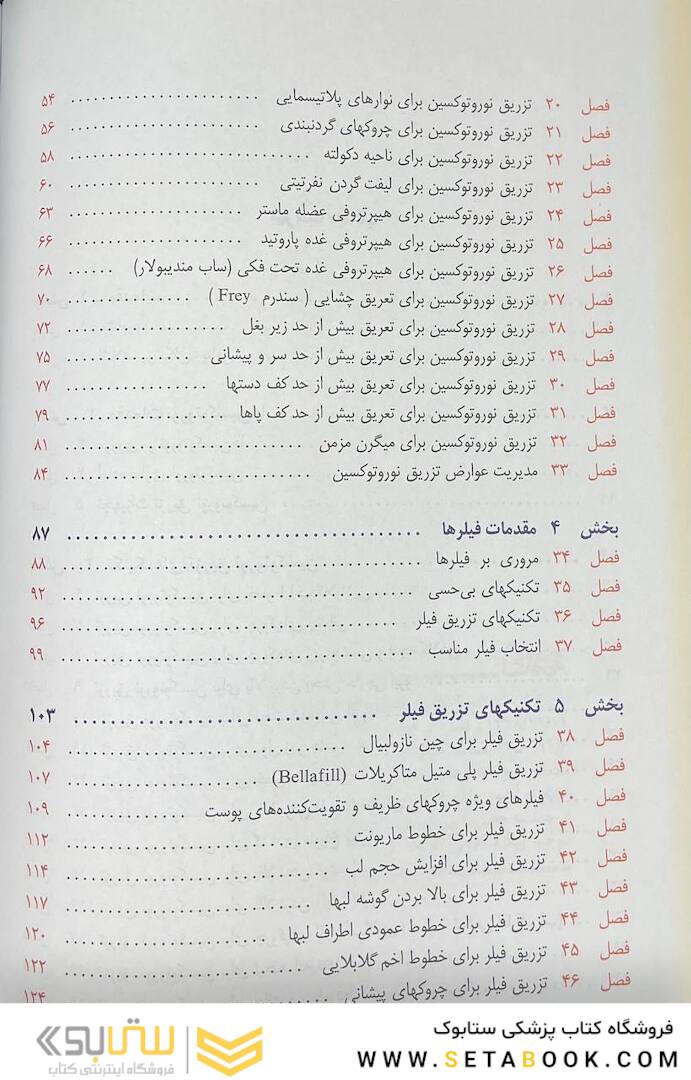 فصل ۲۰ تزریق نوروتوکسین برای نوارهای پلاتیسمایی ........................ ۵۴
فصل ۲۱ تزریق نوروتوکسین برای چروکهای گردنبندی ........................ ۵۶
فصل ۲۲ تزریق نوروتوکسین برای ناحیه دکولته ............................... ۵۸
فصل ۲۳ تزریق نوروتوکسین برای لیفت گردن نفرتیتی ........................ ۶۰
فصل ۲۴ تزریق نوروتوکسین برای هیپرتروفی عضله ماستر ...................... ۶۳
فصل ۲۵ تزریق نوروتوکسین برای هیپرتروفی غده پاروتید ...................... ۶۶
فصل ۲۶ تزریق نوروتوکسین برای هیپرتروفی غده تحت فکی (ساب مندیبولار) ...... ۶۸
فصل ۲۷ تزریق نوروتوکسین برای تعریق چشایی ( سندرم Frey ) ................ ۷۰
فصل ۲۸ تزریق نوروتوکسین برای تعریق بیش از حد زیر بغل .................... ۷۲
فصل ۲۹ تزریق نوروتوکسین برای تعریق بیش از حد سر و پیشانی ................ ۷۵
فصل ۳۰ تزریق نوروتوکسین برای تعریق بیش از حد کف دستها .................. ۷۷
فصل ۳۱ تزریق نوروتوکسین برای تعریق بیش از حد کف پاها .................... ۷۹
فصل ۳۲ تزریق نوروتوکسین برای میگرن مزمن .............................. ۸۱
فصل ۳۳ مدیریت عوارض تزریق نوروتوکسین ............................... ۸۴
بخش ۴ مقدمات فیلرها ........................................ ۸۷
فصل ۳۴ مروری بر فیلرها ............................................. ۸۸
فصل ۳۵ تکنیکهای بی‌حسی ............................................ ۹۲
فصل ۳۶ تکنیکهای تزریق فیلر .......................................... ۹۶
فصل ۳۷ انتخاب فیلر مناسب ............................................ ۹۹
بخش ۵ تکنیکهای تزریق فیلر ................................ ۱۰۳
فصل ۳۸ تزریق فیلر برای چین نازولبیال ................................... ۱۰۴
فصل ۳۹ تزریق فیلر پلی متیل متاکریلات (Bellafill) ......................... ۱۰۷
فصل ۴۰ فیلرهای ویژه چروکهای ظریف و تقویت‌کننده‌های پوست ................ ۱۰۹
فصل ۴۱ تزریق فیلر برای خطوط ماریونت ................................... ۱۱۲
فصل ۴۲ تزریق فیلر برای افزایش حجم لب .................................. ۱۱۴
فصل ۴۳ تزریق فیلر برای بالا بردن گوشه لبها ............................... ۱۱۷
فصل ۴۴ تزریق فیلر برای خطوط عمودی اطراف لبها .......................... ۱۲۰
فصل ۴۵ تزریق فیلر برای خطوط اخم گلابلایی .............................. ۱۲۲
فصل ۴۶ تزریق فیلر برای چروکهای پیشانی ................................. ۱۲۴
فروشگاه کتاب پزشکی ستابوک
WWW.SETABOOK.COM
ستابوک
فروشگاه اینترنتی کتاب